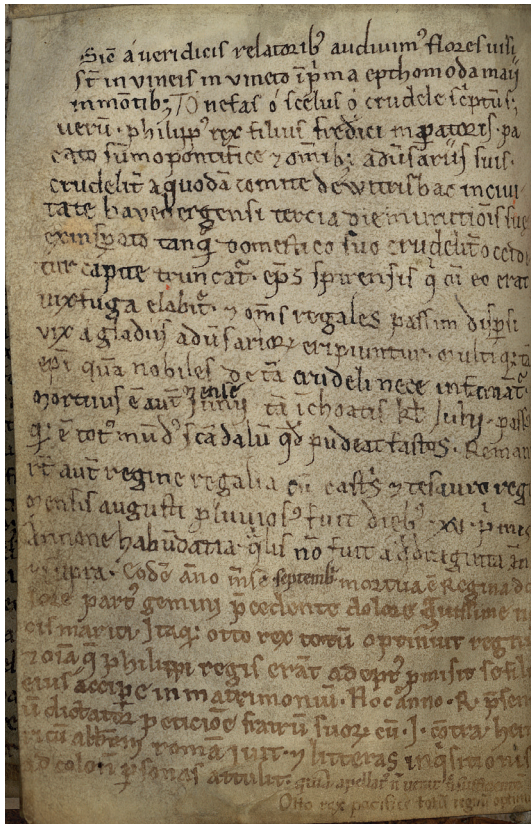 Sic̄ a ueridicis relatorib; audiuimꝰ flores uisi
st̄ in uineis in uineto ip̄ma epthomoda maij
in montib; O nefas o scelus o crudele sc̄ptu
ueru̅ · philippꝰ rex filius fredici inꝑatoris · pa
cato su̅mo pontifice ⁊ om̅ib; adu̅sariis suis ·
crudelit̅ a quoda̅ comite de witrisbac in ciui
tate bauebergensi tercia die
tanq̅ domestico suo crudelit̅ occidi
tur capite truncatꝰ · ep̅s spirensis q̅ cu̅ eo erat
uix fuga elabit̅ · ⁊ om̅s regales passim disp̅si
vix a gladiis adu̅sarioꝝ eripiuntur · multi
ep̅i qua̅ nobiles de ta̅ crudeli nece
mortuus e̅ aut̅ mense Junii ia̅ i̅choatis kl̅ Julij · passꝰ
q; e̅ totꝰ mu̅dꝰ sca̅dalu̅ q̅d pudeat fastos · Reman
rt̅ aut̅ regine regalia cu̅ castris ⁊ tesauro reg
mensis augusti pluuiosꝰ fuit dieb; · xxi · p̅
Annone habu̅datia q̅lis no̅ fuit a q̅draginta an
supra · Eode̅ an̅o m̅se septemb̅ mortua e̅ Regina do
lore partꝰ gemini p̅cedente dolore grauissime n
cis mariti · Itaq; otto rex totu̅ optinuit regn
⁊ oīa q̅ philippi regis era̅t adeptꝰ ꝓmisit se filia
eius accip̅e in matrimoniu̅ · Hoc an̅o · R · p̅
dictator peticio̅e fratru̅ suoꝝ cu̅ · J · co̅tra hen
ricu̅ roma̅ iuit · ⁊ litteras inq̅sitionis
ad colon̅ p̅sonas attulit · quia apellatꝰ
Otto rex pacifice totu̅ regnu̅ optinu